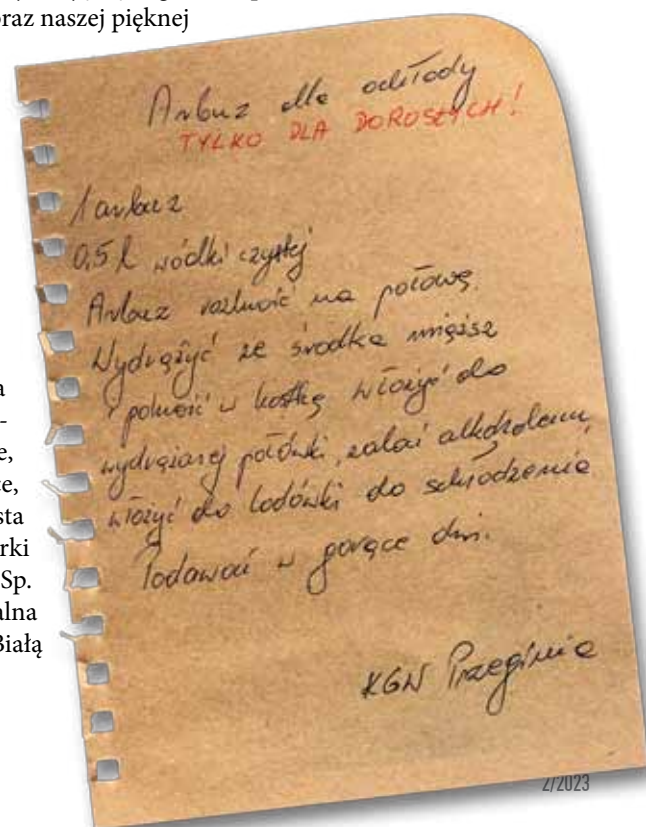 oraz naszej pięknej
Arbuz dla ochłody
TYLKO DLA DOROSŁYCH!
1 arbuz
0,5 l wódki czystej
Arbuz rozkroić na połowę.
Wydrążyć ze środka miąższ
i pokroić w kostkę włożyć do
wydrążonej połówki, zalać alkoholem,
włożyć do lodówki do schłodzenia.
Podawać w gorące dni.
KGW Przeginia
a
-
e,
ce,
sta
rki
Sp.
alna
Białą
2/2023